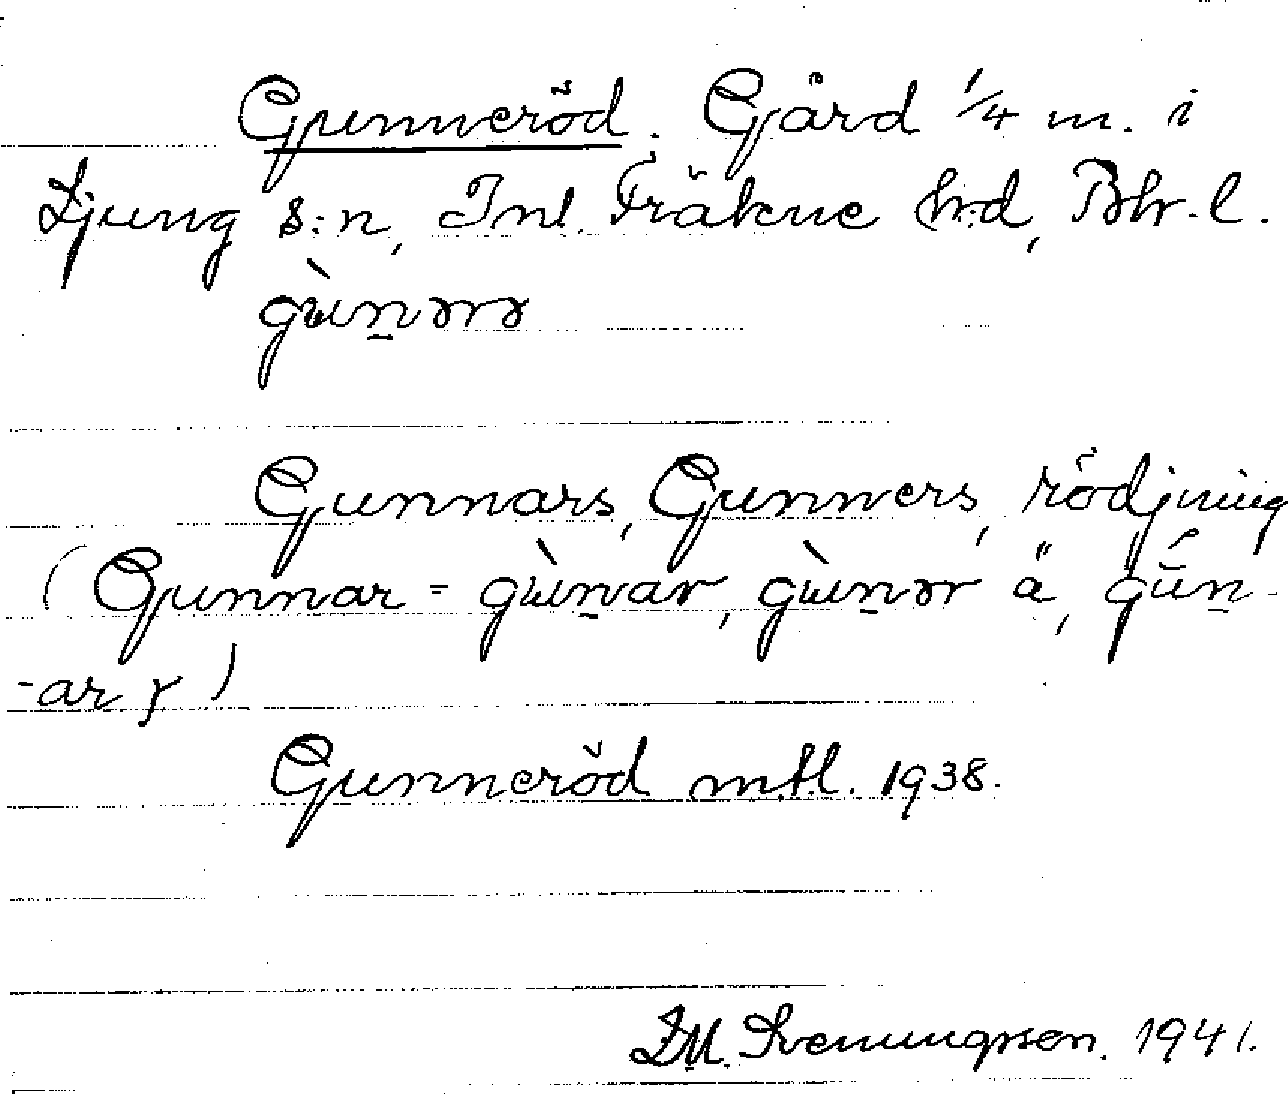 Gunneröd. Gård 1/4 m. i
Ljung s:n, Inl. Fräkne h:d, Bhr.l.
gùn̲ərə
Gunnars, Gunners, rödjning
(Gunnar = gùn̲ar, gùn̲ər ä, gū́n̲-
-ar y)
Gunneröd mtl. 1938.
Svenungsson. 1941.